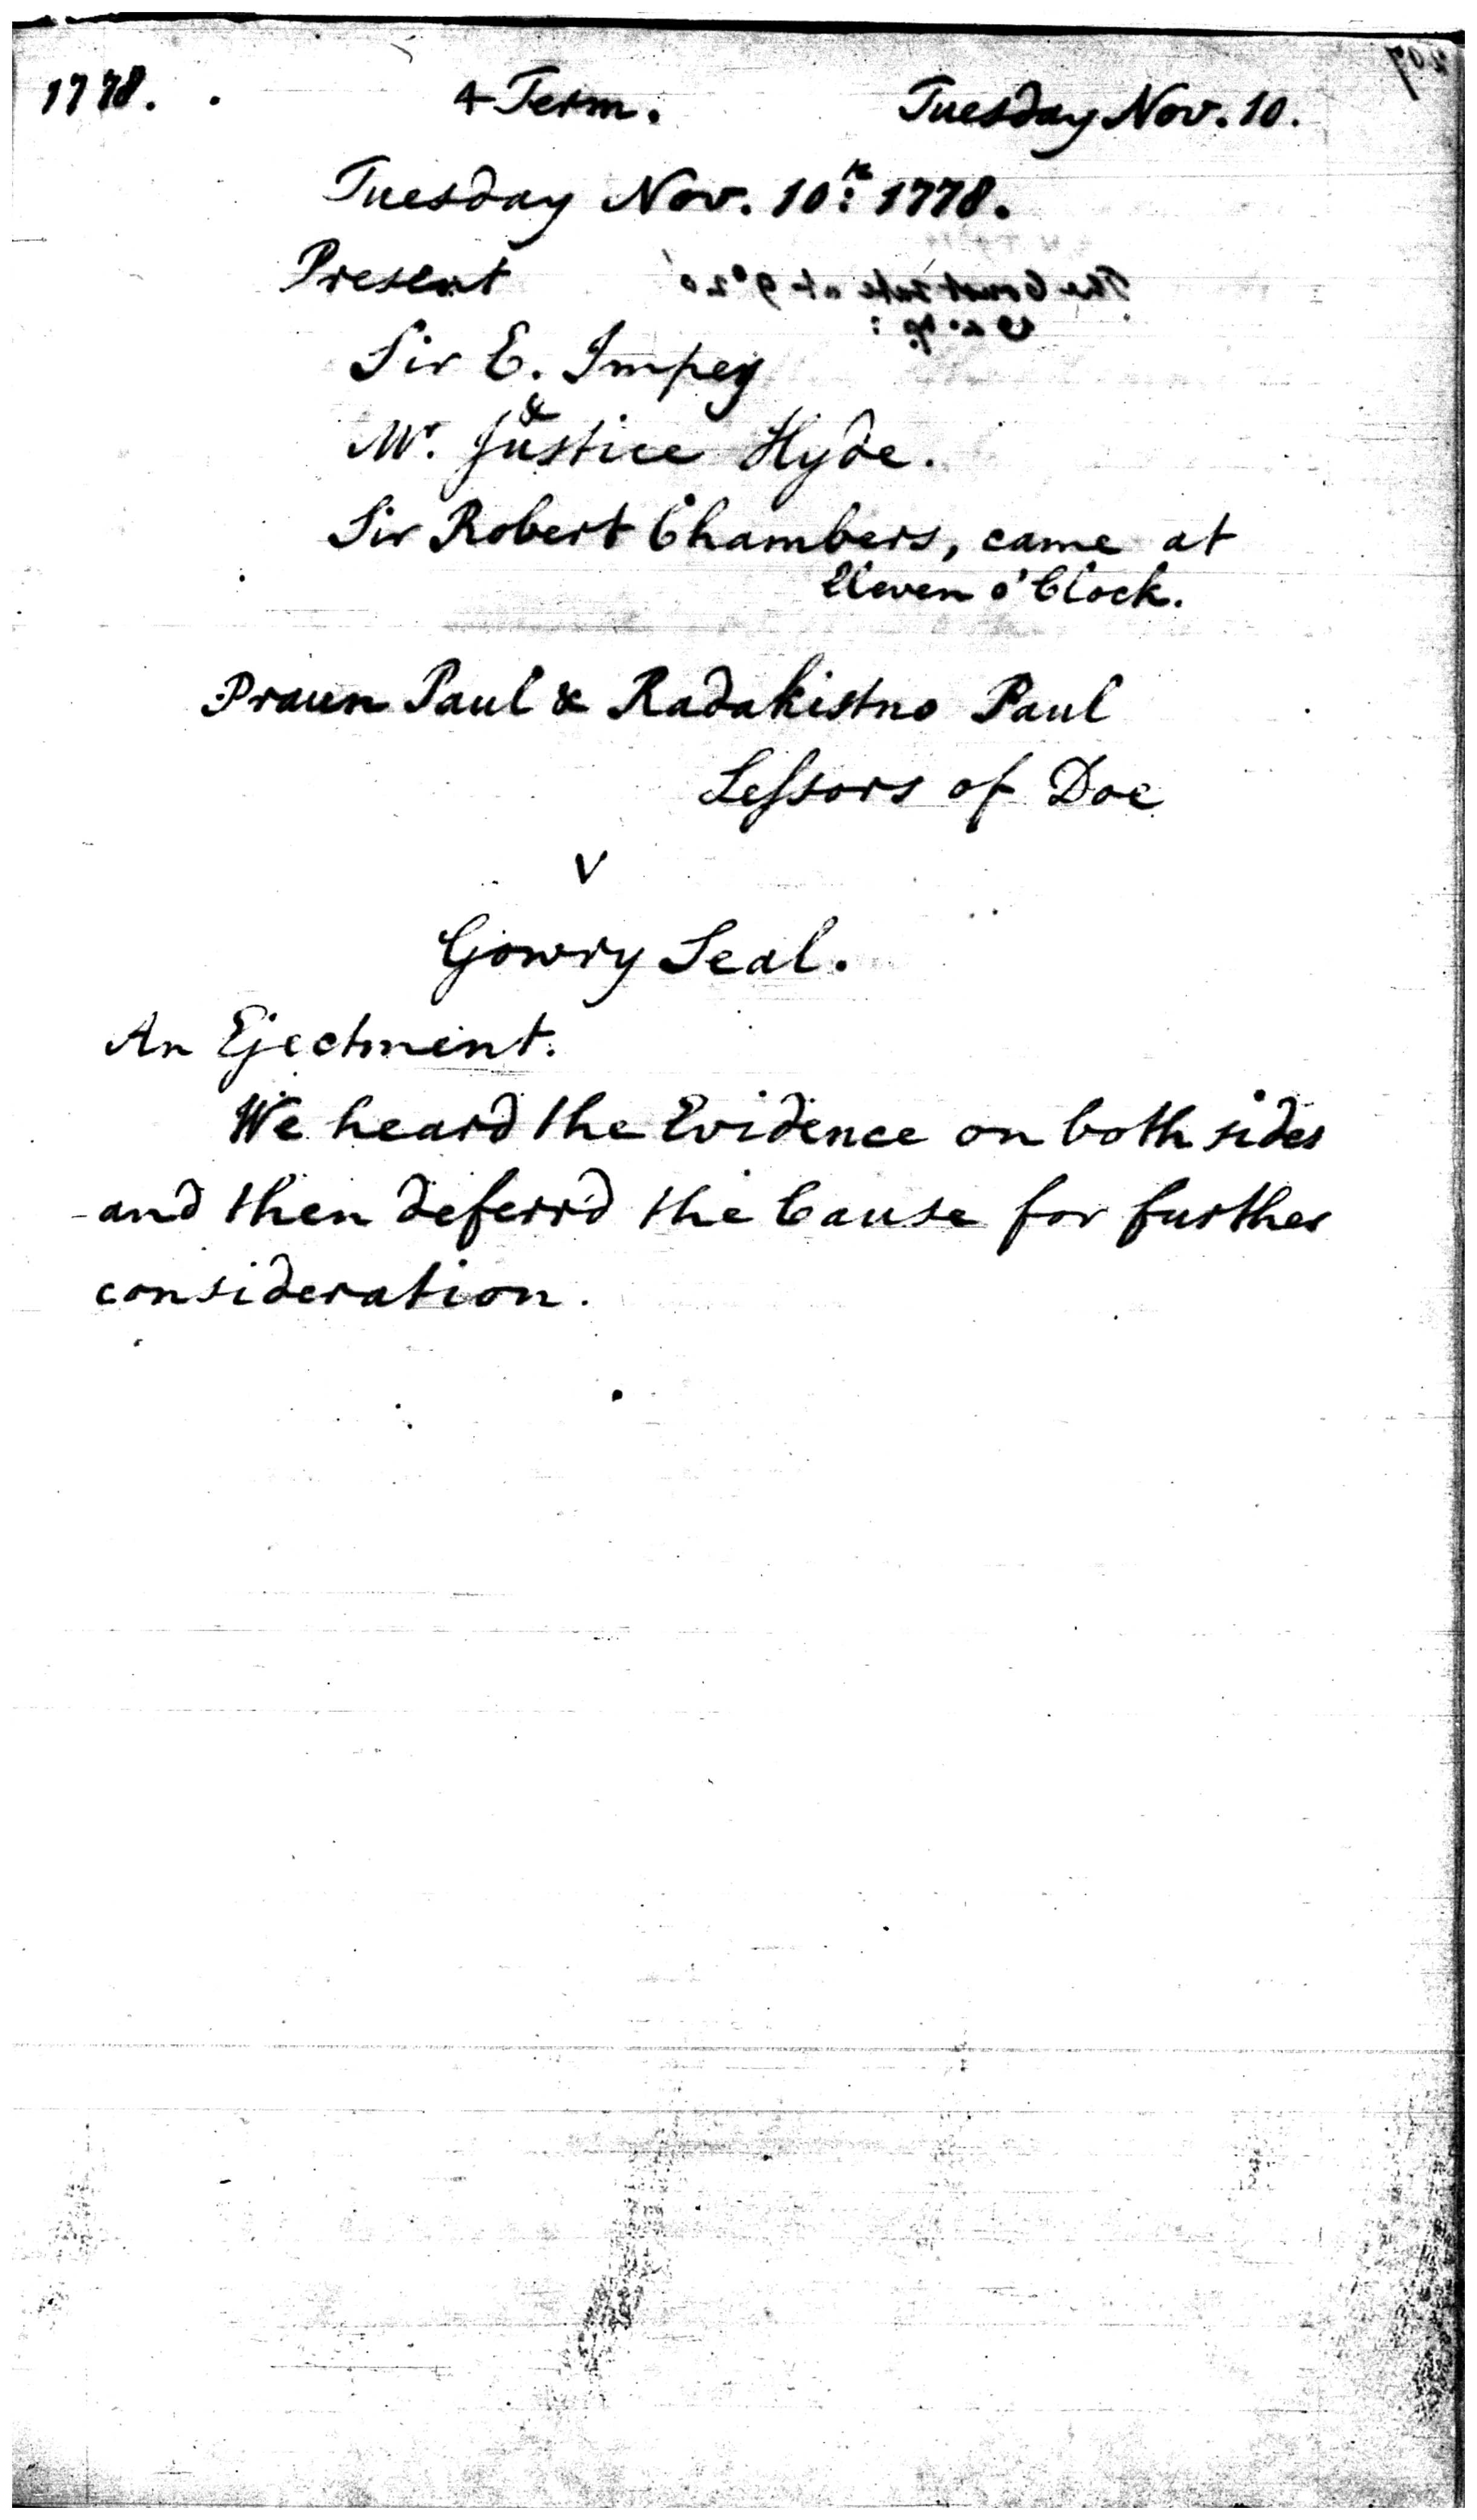 1778. 4 Term. Tuesday Nov. 10.
Tuesday Nov. 10th: 1778.
Present
Sir E. Impey
&
Mr. Justice Hyde.
Sir Robert Chambers, came at
Eleven o'Clock.
Praun Paul & Radakistno Paul
Lessors of Doe
V
Gowry Seal.
An Ejectment.
We heard the Evidence on both sides
and then deferr'd the Cause for further
consideration.